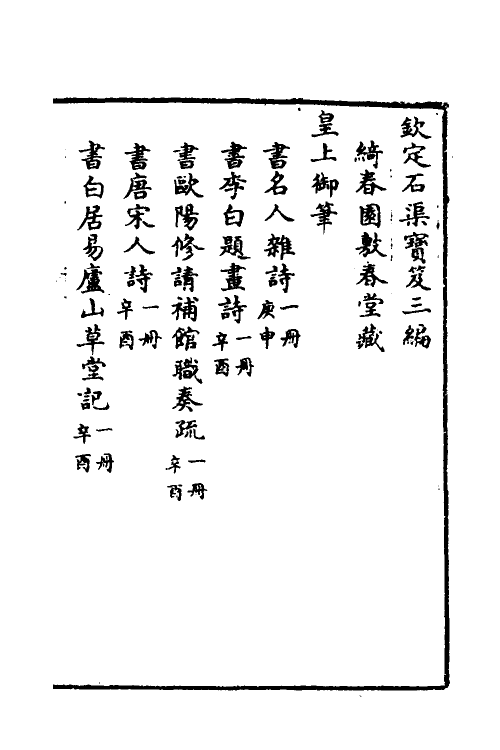 欽定石渠寶笈三編
綺春園敷春堂藏
皇上御筆
書名人雜詩一冊庚申
書李白題畫詩一冊辛酉
書歐陽修請補館職奏疏一冊辛酉
書唐宋人詩一冊辛酉
書白居易廬山草堂記一冊辛酉